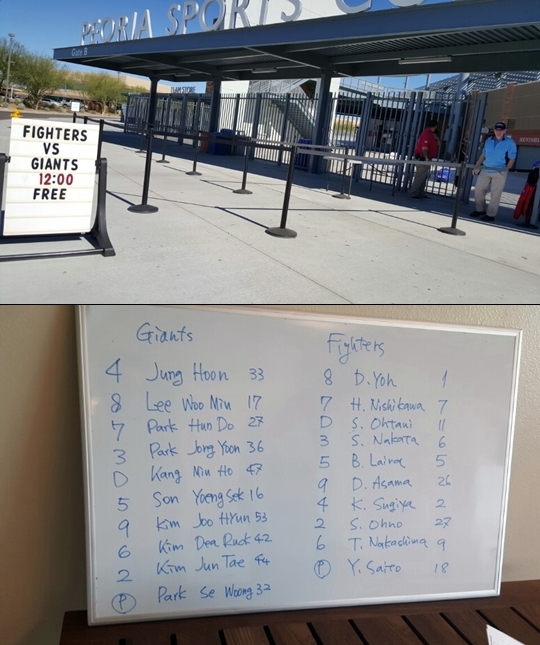 PEORIA SPORTS CO
Gate B
TEAM STORE
FIGHTERS
VS
GIANTS
12:00
FREE
Giants
4 Jung Hoon 33
8 Lee Woo Min 17
7 Park Hun Do 27
3 Park Jong Yoon 36
D Kang Min Ho 47
5 Son Yong Sek 16
9 Kim Joo Hyun 53
6 Kim Dea Ruck 42
2 Kim Jun Tae 44
P Park Se Woong 32
Fighters
8 D. Yoh 1
7 H. Nishikawa 7
D S. Ohtani 11
3 S. Nakata 6
5 B. Laird 5
9 D. Asama 26
4 K. Sugiya 2
2 S. Ohno 27
6 T. Nakashima 9
P Y. Saito 18